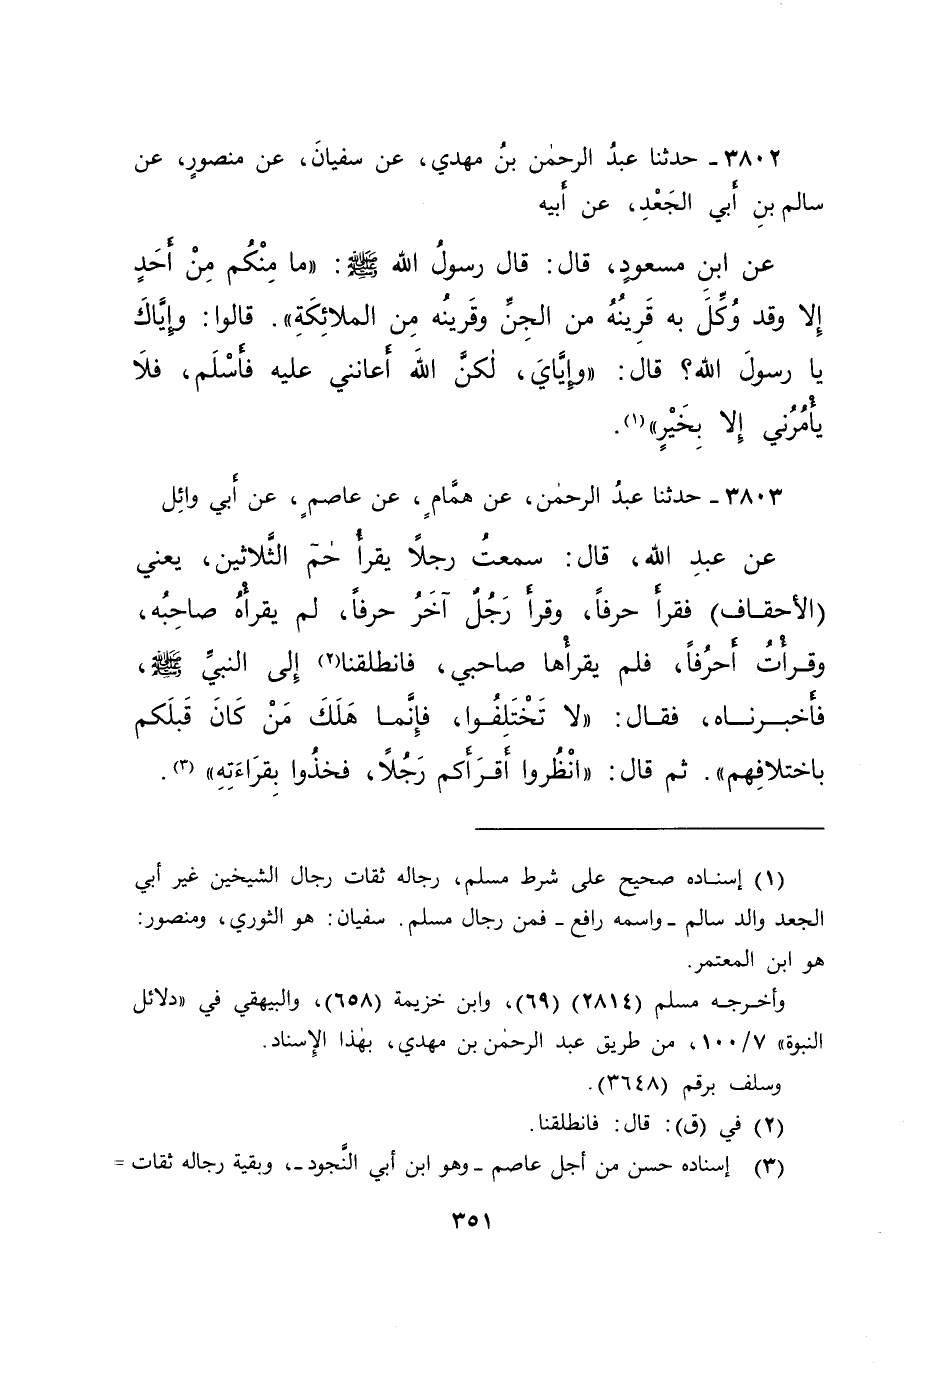 ٣٨٠٢ ـ حدثنا عبدُ الرحمٰن بنُ مهدي، عن سفيانَ، عن منصورٍ، عن
سالم بنِ أَبي الجَعْدِ، عن أَبيه
عن ابنِ مسعودٍ، قال: قال رسولُ الله ﷺ: «ما مِنْكُم مِنْ أَحَدٍ
إلا وقد وُكِّلَ به قَرِينُهُ من الجِنِّ وقَرينُه مِن الملائِكَةِ». قالوا: وإِيَّاكَ
يا رسولَ الله؟ قال: «وإِيَّايَ، لٰكنَّ اللهَ أَعانني عليه فأَسْلَم، فلَا
يأْمُرُني إِلا بِخَيْرٍ»(١).
٣٨٠٣ ـ حدثنا عبدُ الرحمٰن، عن همَّامٍ، عن عاصمٍ، عن أَبي وائِل
عن عبدِ الله، قال: سمعتُ رجلًا يقرأُ حٰمٓ الثَّلاثين، يعني
(الأحقـاف) فقرأَ حرفاً، وقرأَ رَجُلٌ آخَرُ حرفاً، لم يقرأْهُ صاحبُه،
وقـرأْتُ أَحرُفاً، فلم يقرأْها صاحبي، فانطلقنا(٢) إِلى النبيِّ ﷺ،
فأَخبـرنـاه، فقـال: «لا تَخْتَلِفُـوا، فإِنَّمـا هَلَكَ مَنْ كَانَ قَبلَكم
باختلافِهم». ثم قال: «انْظُروا أَقـرَأَكم رَجُلًا، فخذُوا بِقرَاءَتِهِ» (٣).
(١) إسنـاده صحيح على شرط مسلم، رجاله ثقات رجال الشيخين غير أبي
الجعد والد سالم ـ واسمه رافع ـ فمن رجال مسلم. سفيان: هو الثوري، ومنصور:
هو ابن المعتمر.
وأخـرجـه مسلم (٢٨١٤) (٦٩)، وابن خزيمة (٦٥٨)، والبيهقي في «دلائل
النبوة» ١٠٠/٧، من طريق عبد الرحمٰن بن مهدي، بهٰذا الإِسناد.
وسلف برقم (٣٦٤٨).
(٢) في (ق): قال: فانطلقنا.
(٣) إسناده حسن من أجل عاصم ـ وهو ابن أبي النَّجود ـ، وبقية رجاله ثقات =
٣٥١